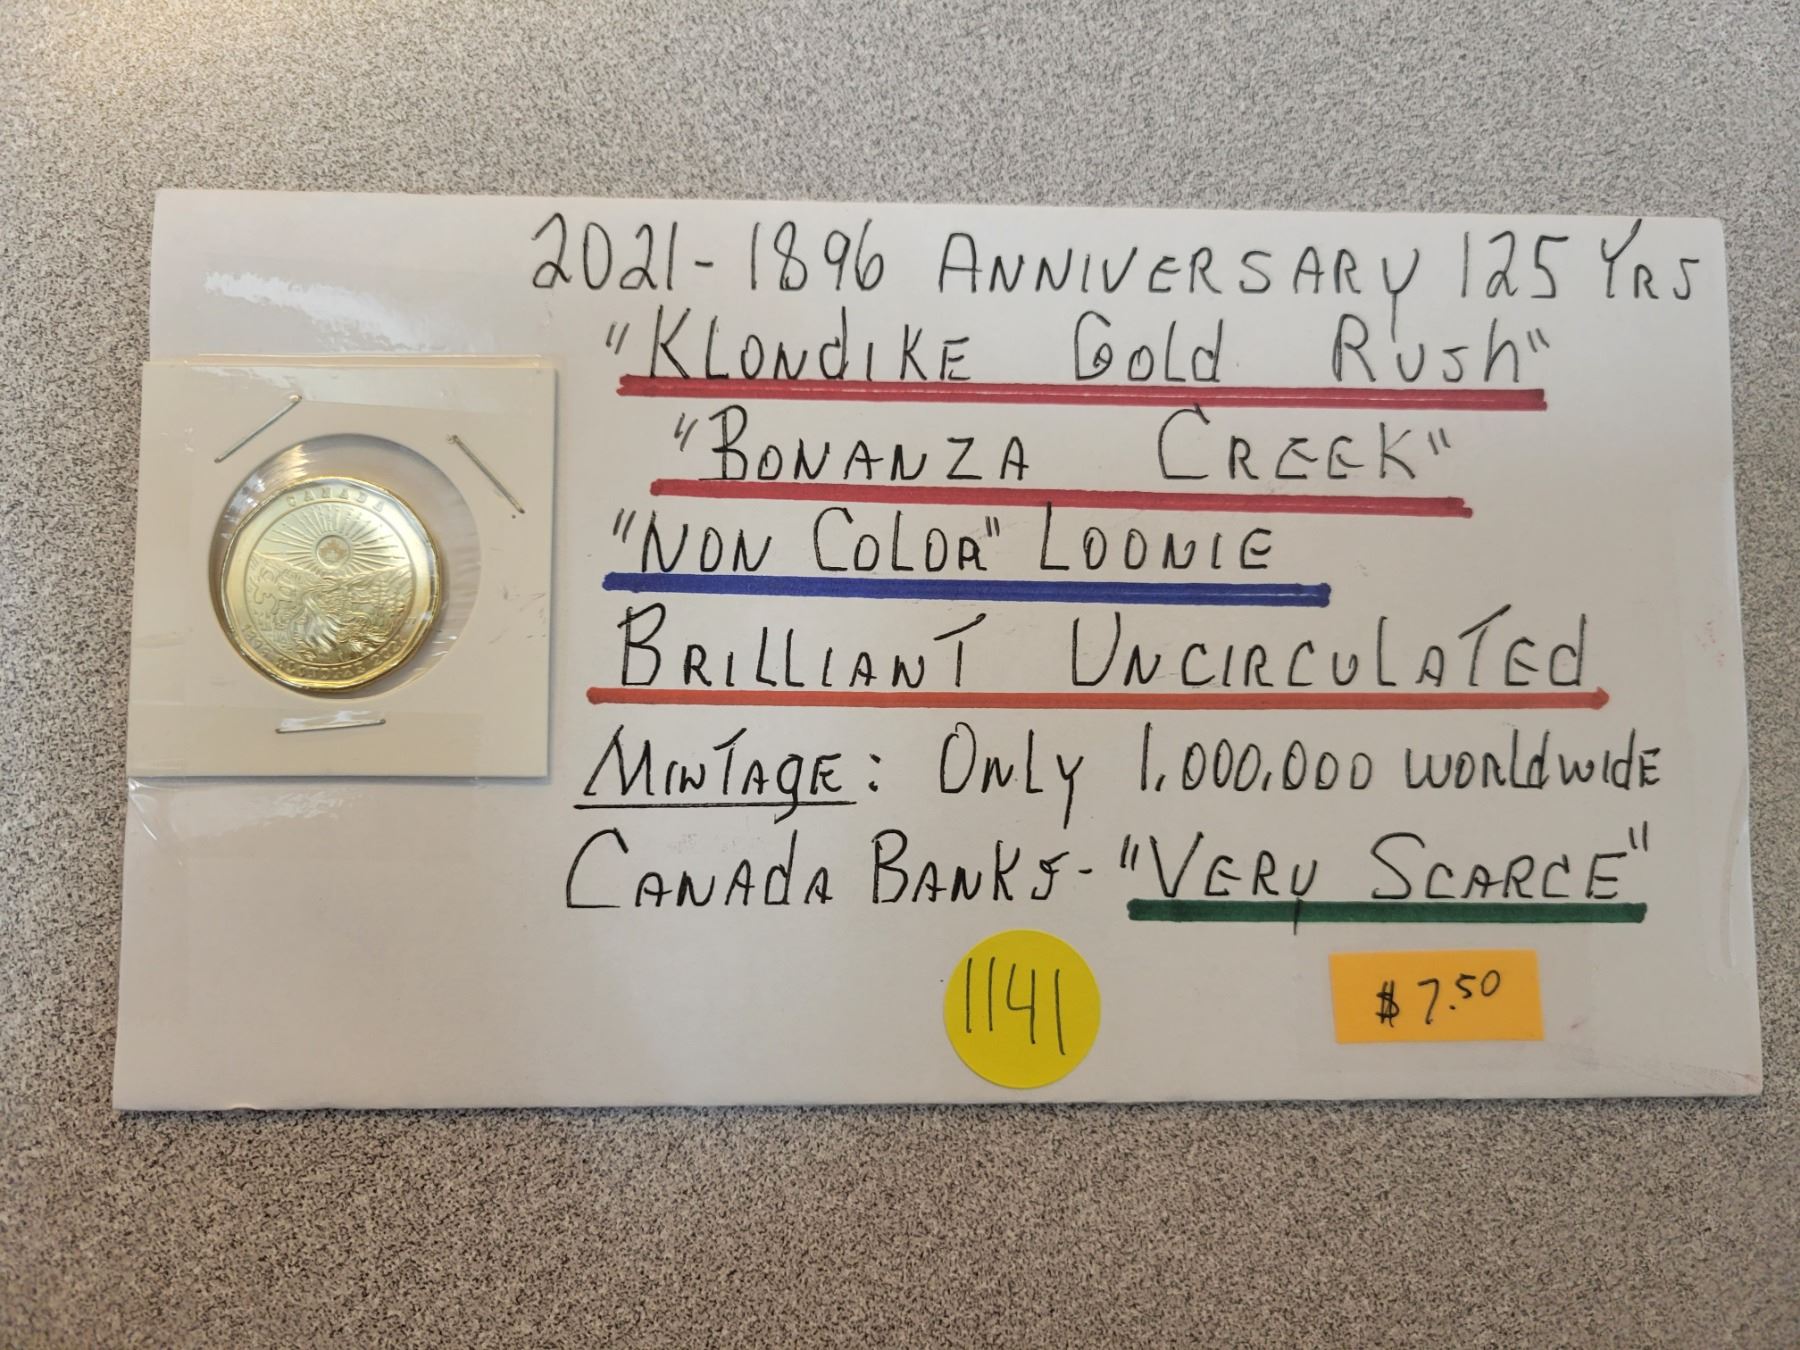 2021-1896 ANNIVERSARY 125 YRS
"KLONdIKE GOLd RUSh"
"BONANZA CREEK"
"NON COLOR" LOONIE
BRILLIANT UNCIRCULATEd
MINTAgE: ONLY 1,000,000 WORLdWIdE
CANAdA BANKS - "VERY SCARCE"
1141
$7.50
CANADA
1896 KLONDIKE 2021